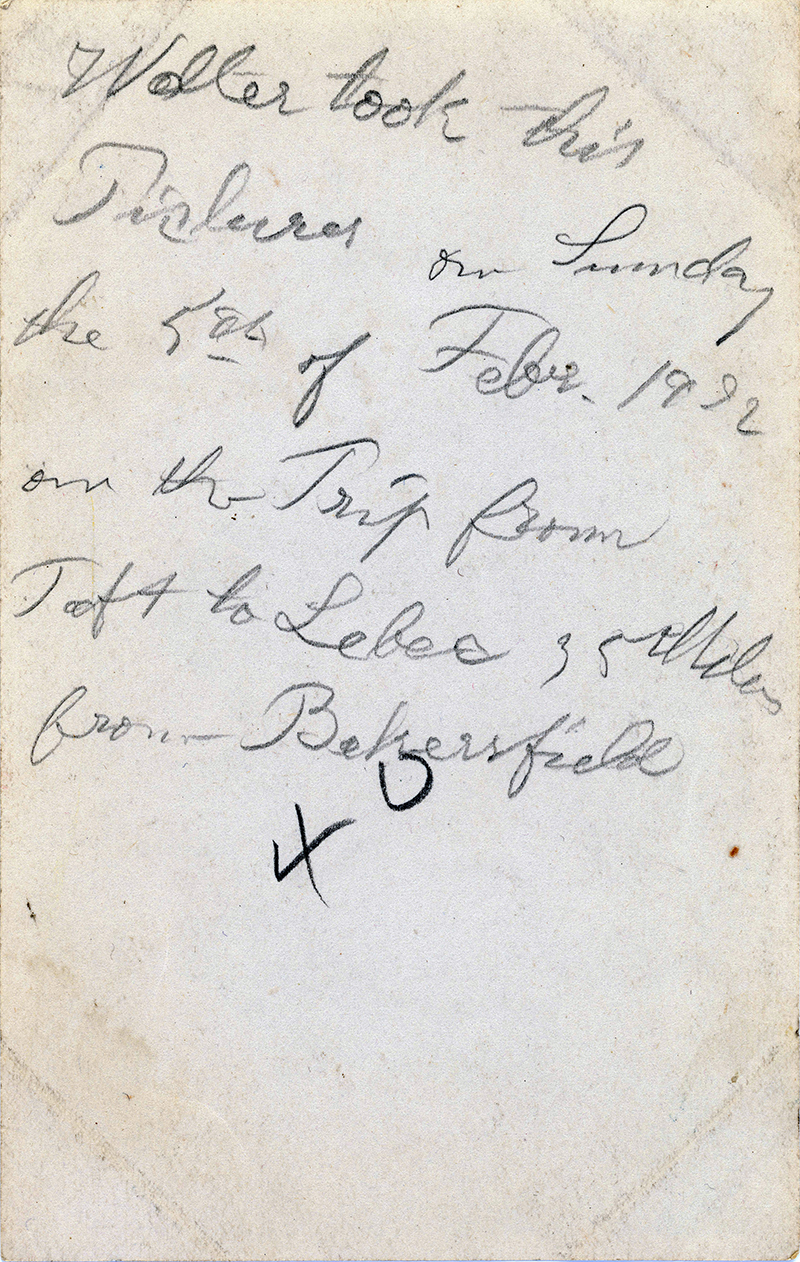 Walter took this
Pictures on Sunday
the 5th of Febr. 1932
on the Trip from
Taft to Lebec 35 Miles
from Bakersfield
4